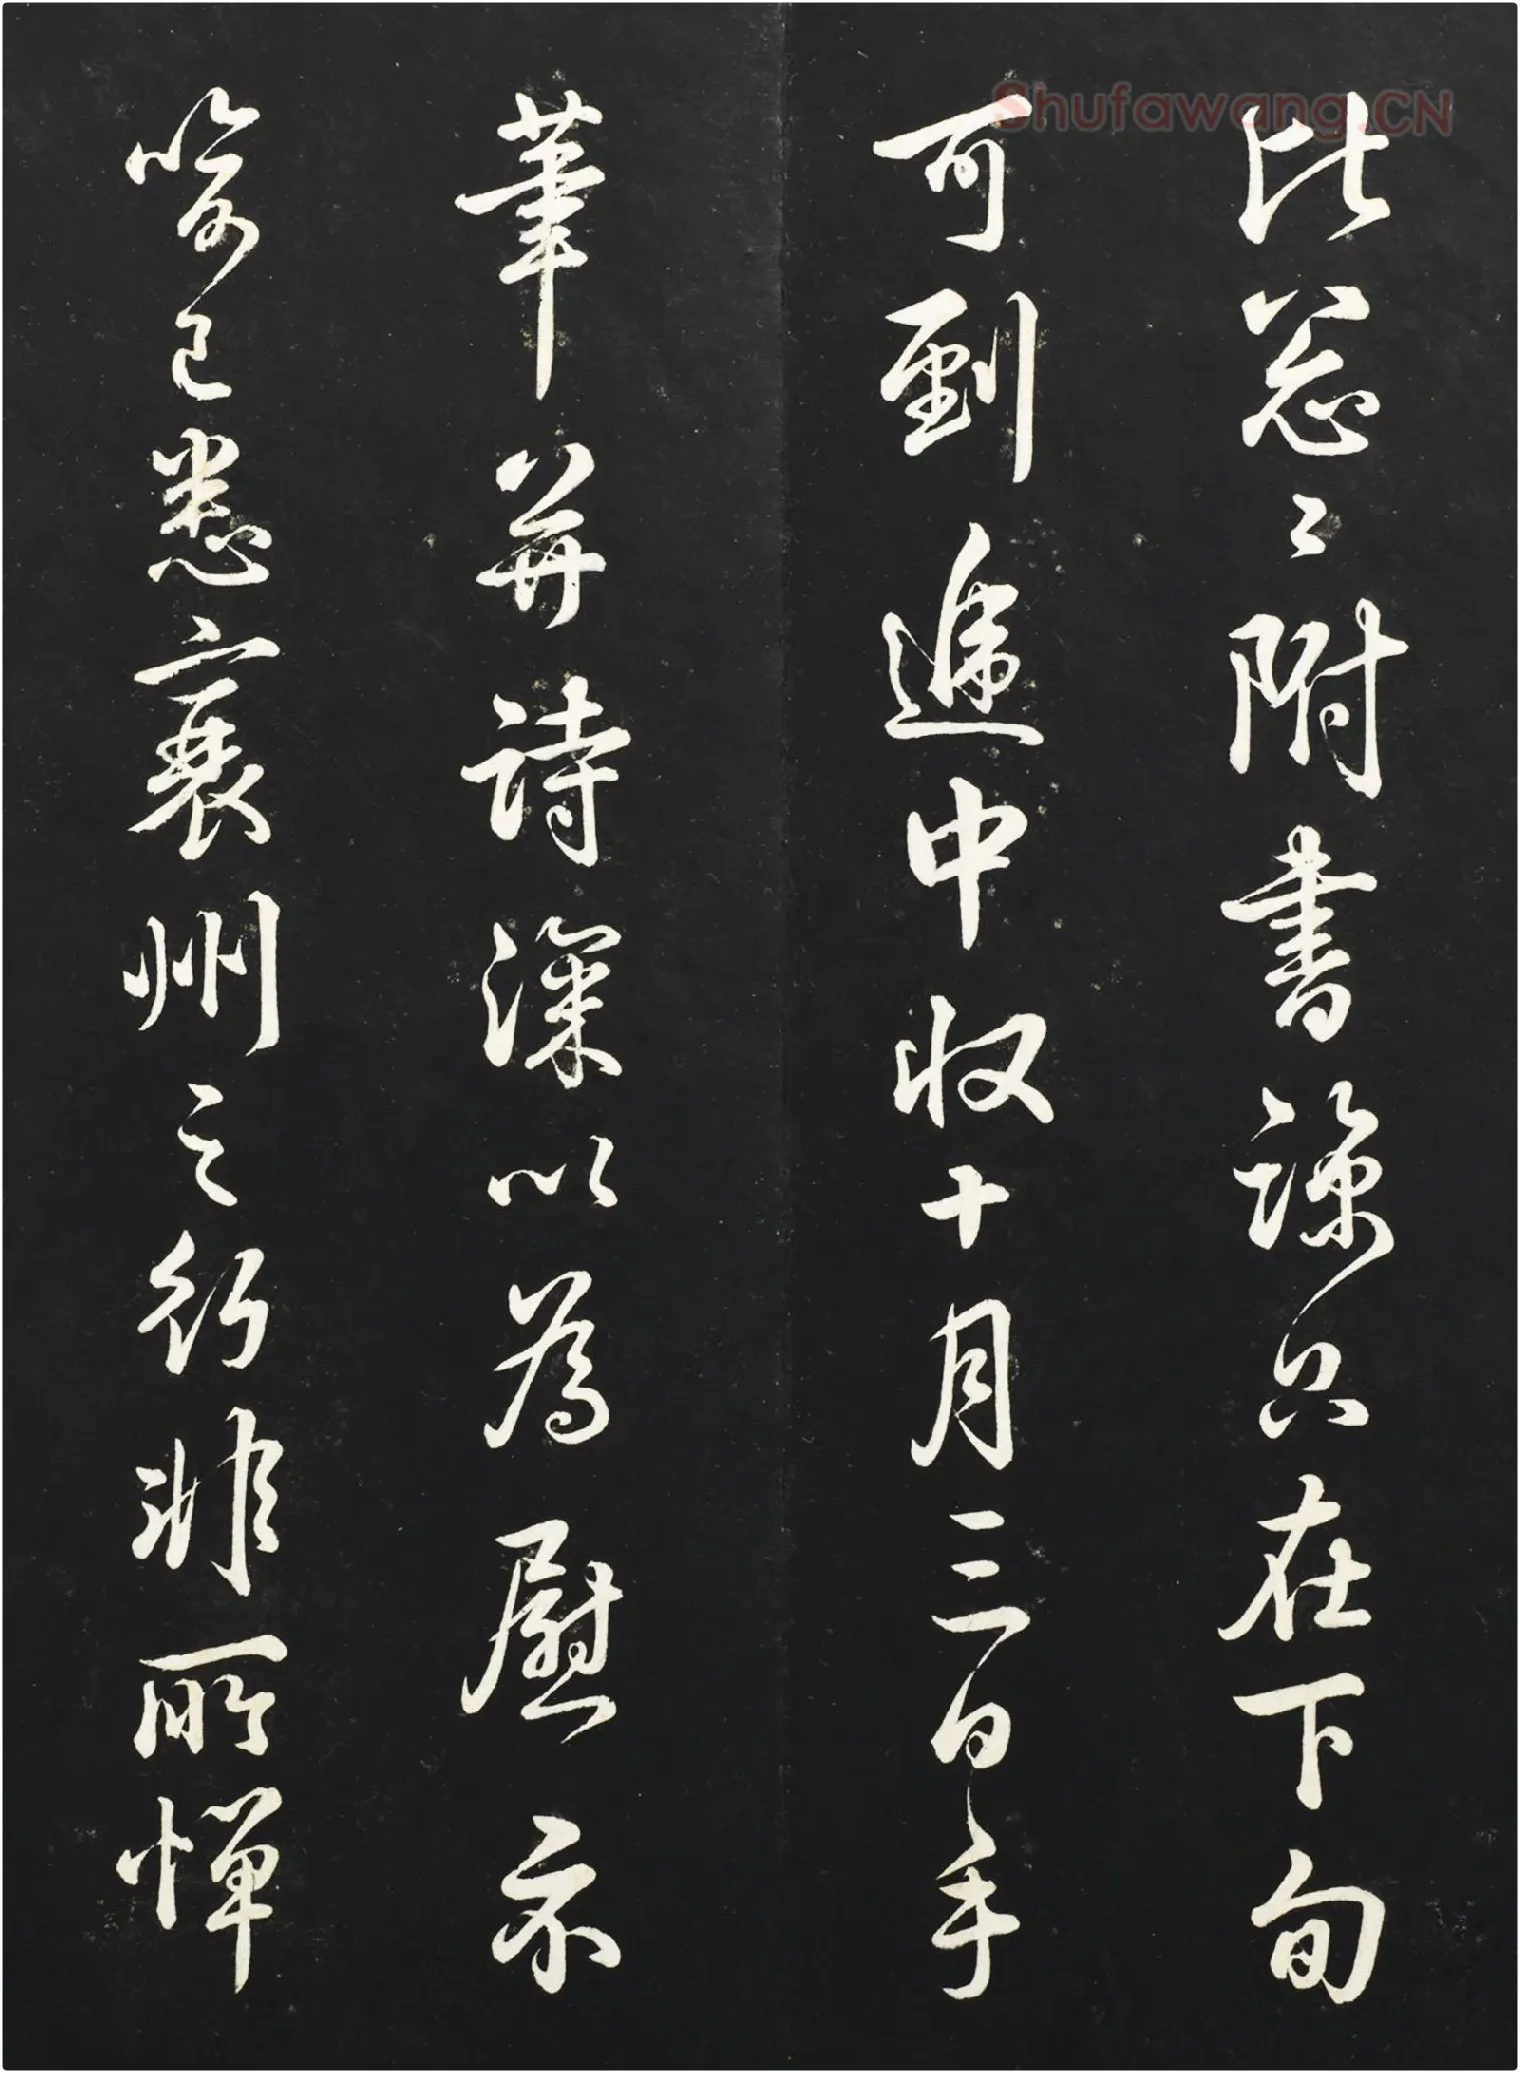 Shufawang.CN
比怱〻附書諒只在下旬
可到遞中收十月三日手
筆并詩深以為慰示
喻已悉襄州之行非所憚